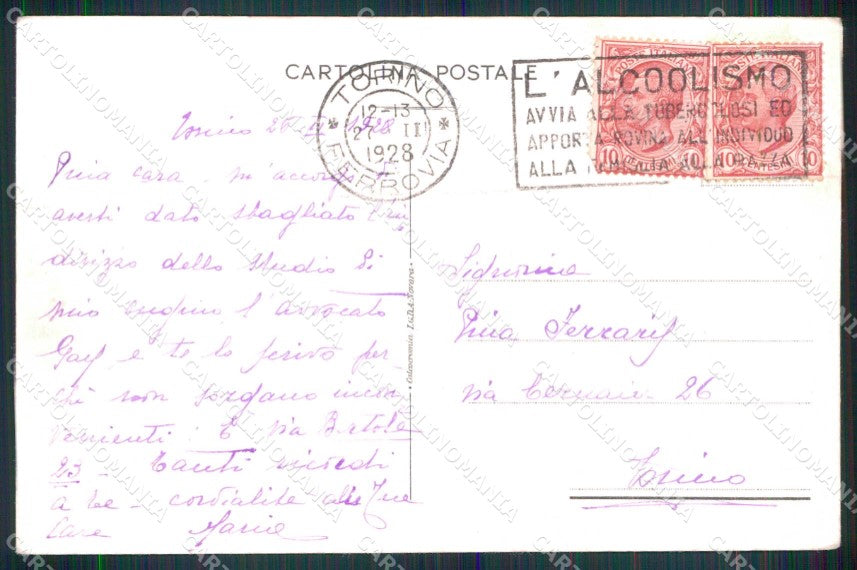 CARTOLINA POSTALE
TORINO
12-13
27 II
1928
FERROVIA
L'ALCOOLISMO
AVVIA ALLA TUBERCOLOSI ED
APPORTA ROVINA ALL'INDIVIDUO
ALLA FAMIGLIA ALLA RAZZA
POSTE ITALIANE
10 10 10 10
Torino 1928
Pina cara m'accorgo
averti dato sbagliato l'in
dirizzo dello studio di
mio cugino l'avvocato
e te lo scrivo per
chè non sorgano incon
venienti: È via Bertola
23 - Tanti ricordi
a te - cordialità alle tue
care Maria
Signorina
Pina Ferraris
via Cernaia 26
Torino
CARTOLINOMANIA